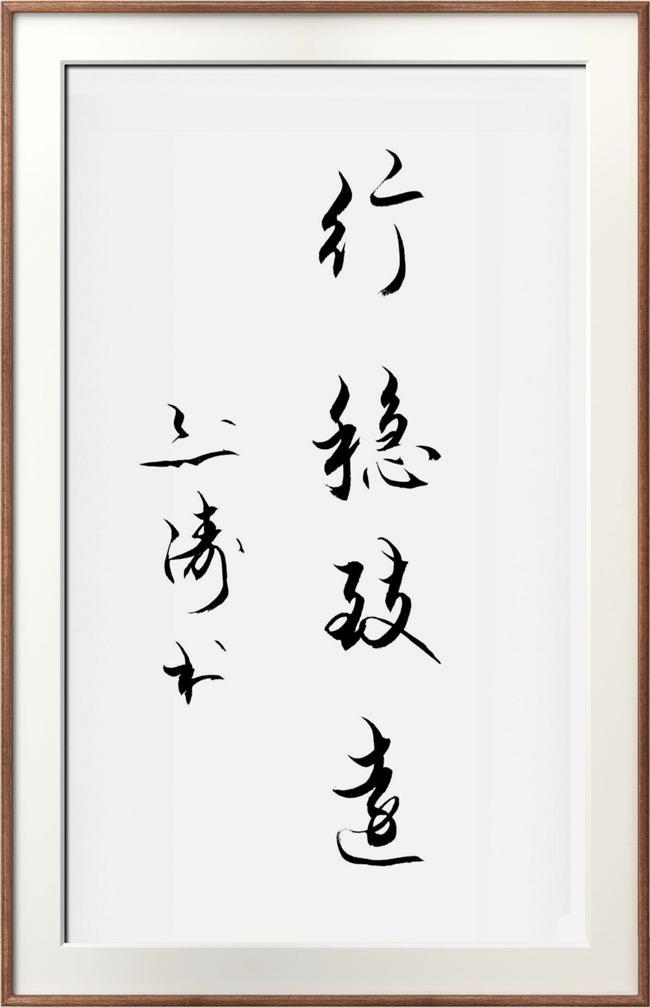 行稳致远
涛书